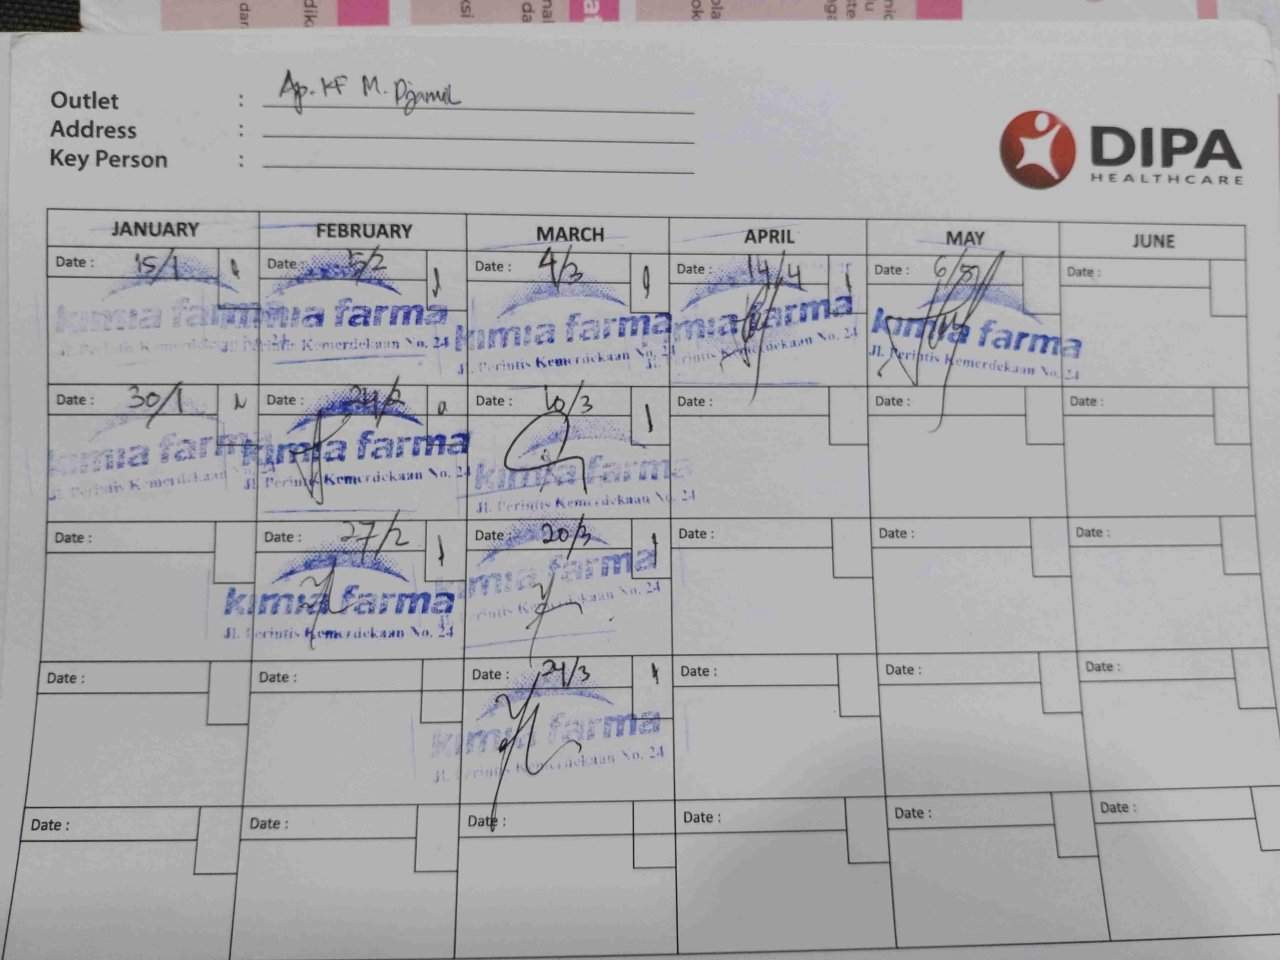 Outlet : Ap. KF M. Djamil
Address :
Key Person :
DIPA
HEALTHCARE
JANUARY FEBRUARY MARCH APRIL MAY JUNE
Date : 15/1 Date : 5/2 Date : 4/3 Date : 14/4 Date : Date :
kimia farma kimia farma kimia farma kimia farma kimia farma
Jl. Perintis Kemerdekaan No. 24 Jl. Perintis Kemerdekaan No. 24 Jl. Perintis Kemerdekaan No. 24 Jl. Perintis Kemerdekaan No. 24
Date : 30/1 Date : 24/2 Date : 10/3 Date : Date : Date :
kimia farma kimia farma kimia farma
Jl. Perintis Kemerdekaan Jl. Perintis Kemerdekaan No. 24 Jl. Perintis Kemerdekaan No. 24
Date : Date : 27/2 Date : 20/3 Date : Date : Date :
kimia farma kimia farma
Jl. Perintis Kemerdekaan No. 24 Jl. Perintis Kemerdekaan No. 24
Date : Date : Date : 24/3 Date : Date : Date :
kimia farma
Jl. Perintis Kemerdekaan No. 24
Date : Date : Date : Date : Date : Date :